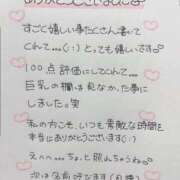 ありがとうございます
すごく嬉しい事たくさん書いて
くれて…(；；)とっても嬉しいです
100点評価にしてくれて…
巨乳の欄は見なかった事に
しました。笑
私の方こそ、いつも素敵な時間を
本当にありがとうございます(；；)
えへへ…ちょと照れちゃうね
次は名前呼びます